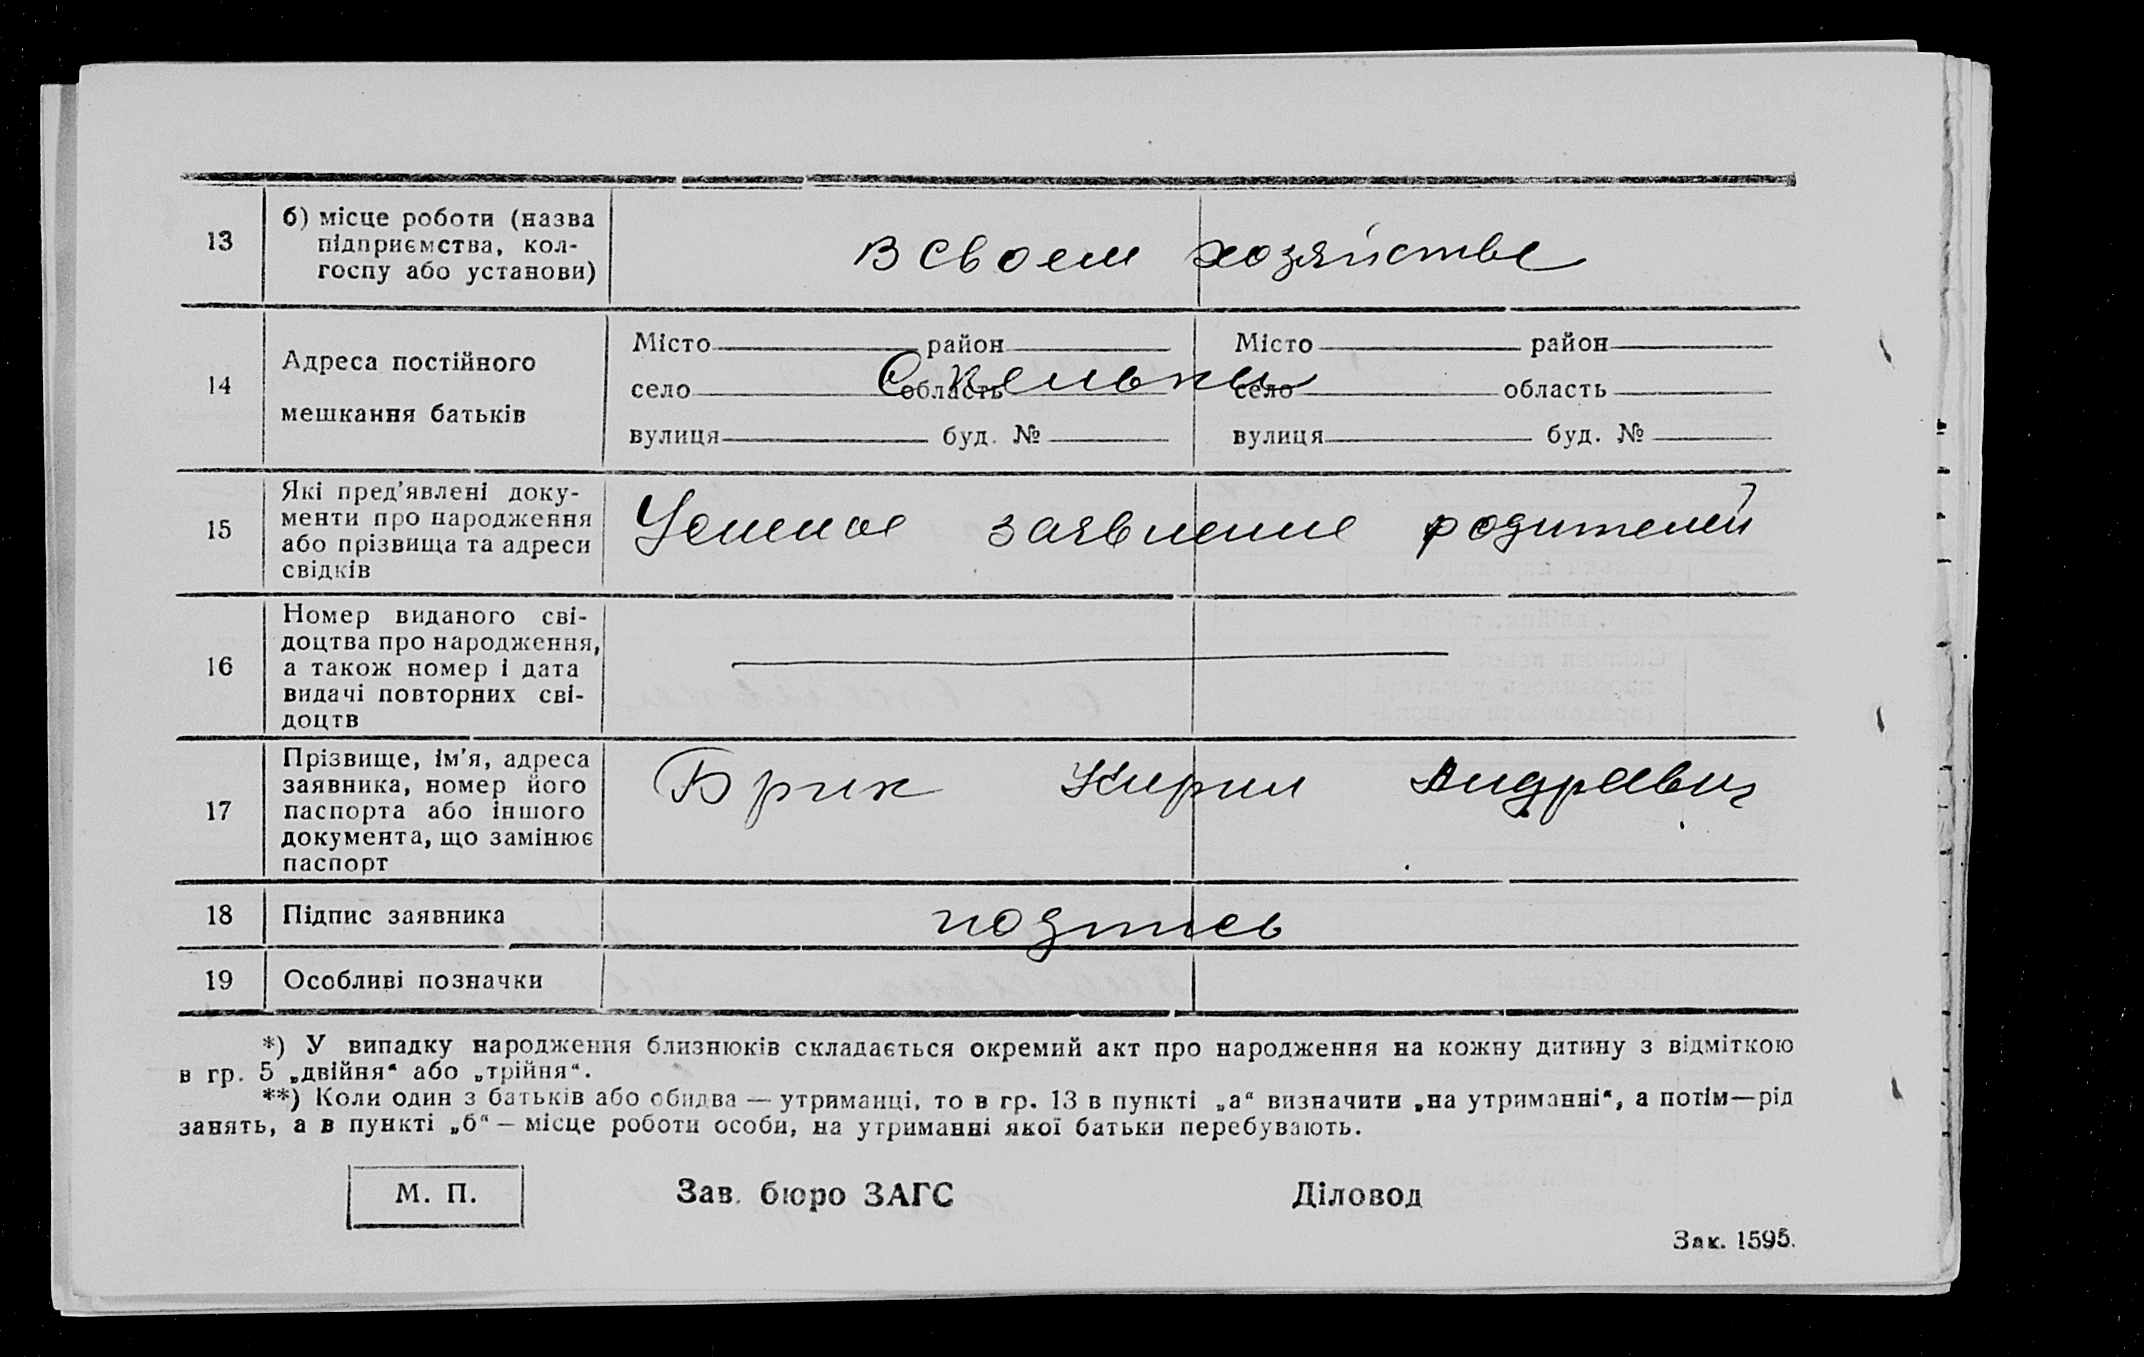 13
б) місце роботи (назва
підприємства, кол-
госпу або установи)
в своем хозяйстве
14
Адреса постійного
мешкання батьків
Місто район Місто район
село область село область
Скельки
вулиця буд. № вулиця буд. №
15
Які пред'явлені доку-
менти про народження
або прізвища та адреси
свідків
Усменое заявление родителей
16
Номер виданого сві-
доцтва про народження,
а також номер і дата
видачі повторних сві-
доцтв
17
Прізвище, ім'я, адреса
заявника, номер його
паспорта або іншого
документа, що замінює
паспорт
Брик Кирил Андревич
18
Підпис заявника
подпись
19
Особливі позначки
*) У випадку народження близнюків складається окремий акт про народження на кожну дитину з відміткою
в гр. 5 „двійня“ або „трійня“.
**) Коли один з батьків або обидва — утриманці, то в гр. 13 в пункті „а“ визначити „на утриманні“, а потім—рід
занять, а в пункті „б“ — місце роботи особи, на утриманні якої батьки перебувають.
М. П.
Зав. бюро ЗАГС
Діловод
Зак. 1595.